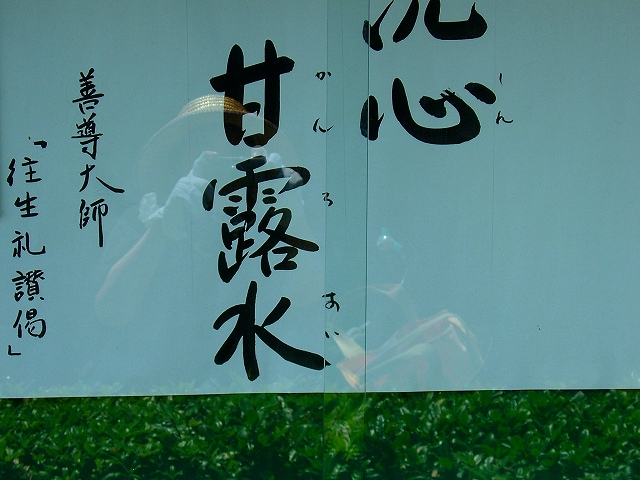 心
しん
甘露水
かんろすい
善導大師
「往生礼讃偈」